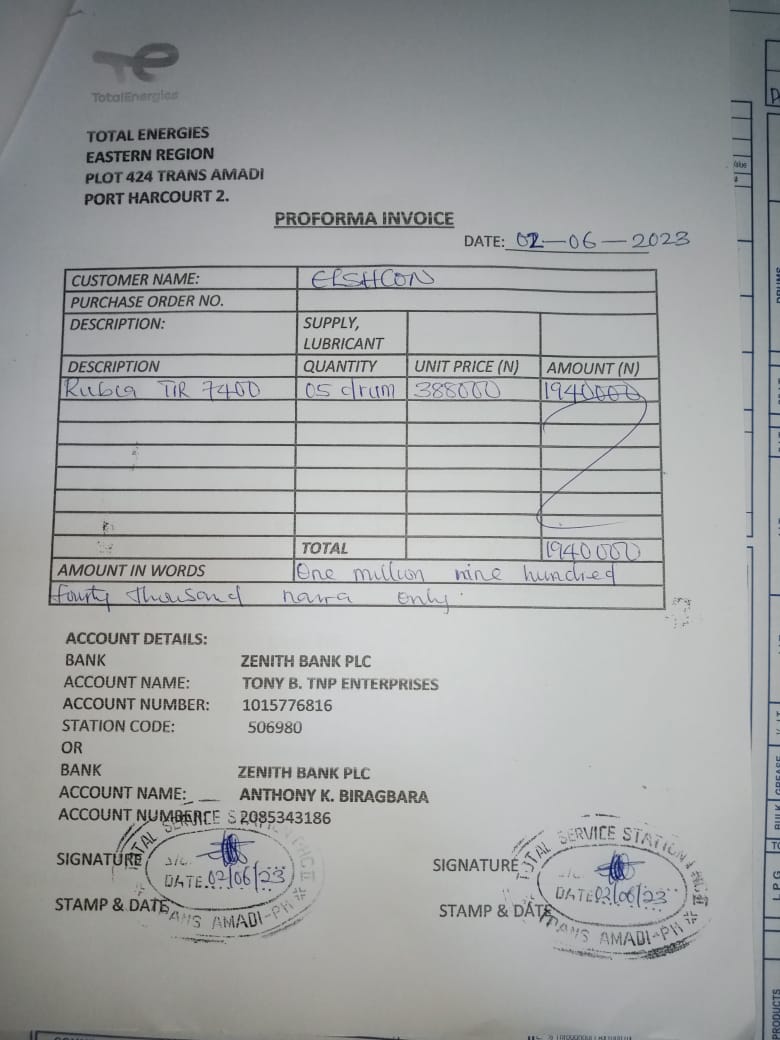 TotalEnergies
TOTAL ENERGIES
EASTERN REGION
PLOT 424 TRANS AMADI
PORT HARCOURT 2.
PROFORMA INVOICE
DATE: 02-06-2023
CUSTOMER NAME: ELSHCON
PURCHASE ORDER NO.
DESCRIPTION: SUPPLY, LUBRICANT
DESCRIPTION QUANTITY UNIT PRICE (N) AMOUNT (N)
Rubia TIR 7400 05 drum 388000 1940000
TOTAL 1940000
AMOUNT IN WORDS One million nine hundred
fourty thousand naira only.
ACCOUNT DETAILS:
BANK ZENITH BANK PLC
ACCOUNT NAME: TONY B. TNP ENTERPRISES
ACCOUNT NUMBER: 1015776816
STATION CODE: 506980
OR
BANK ZENITH BANK PLC
ACCOUNT NAME: ANTHONY K. BIRAGBARA
ACCOUNT NUMBER 2085343186
SIGNATURE SIGNATURE
STAMP & DATE STAMP & DATE
TOTAL SERVICE STATION PHC II
DATE 02/06/23
TRANS AMADI-PH
TOTAL SERVICE STATION PHC II
DATE 02/06/23
TRANS AMADI-PH